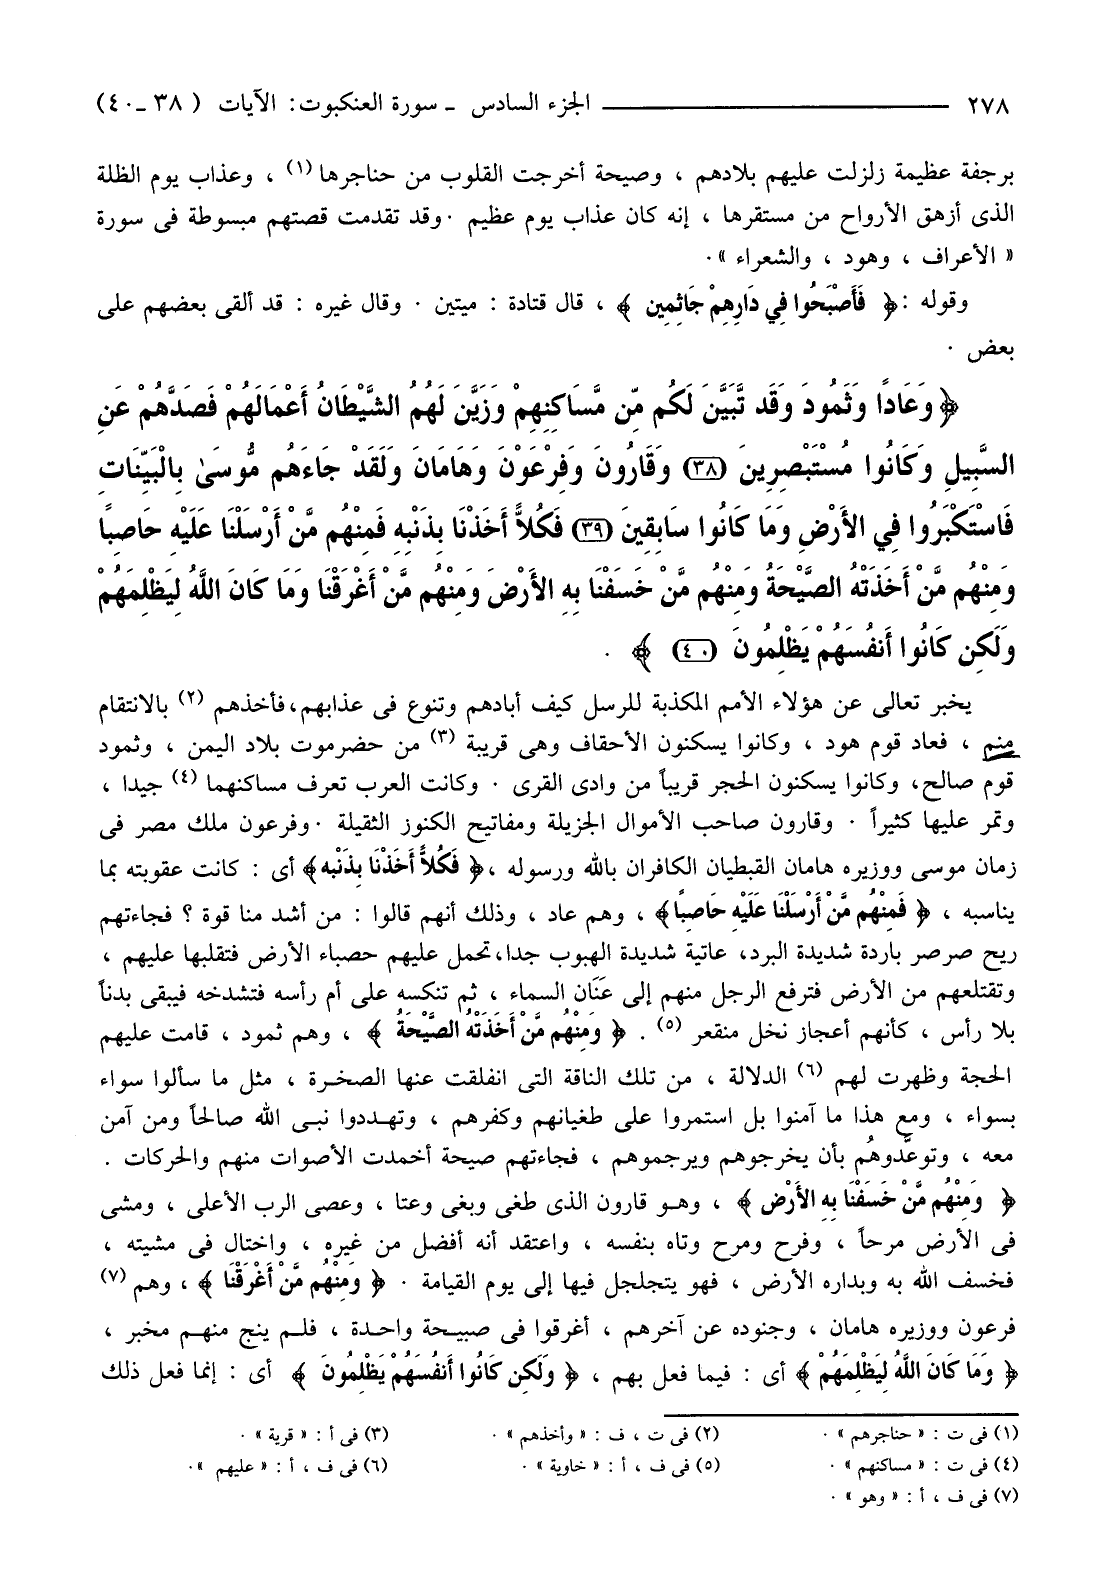 ٢٧٨ ــــــــــــــــــــ الجزء السادس ـ سورة العنكبوت: الآيات ( ٣٨ ـ ٤٠)
برجفة عظيمة زلزلت عليهم بلادهم ، وصيحة أخرجت القلوب من حناجرها (١) ، وعذاب يوم الظلة
الذى أزهق الأرواح من مستقرها ، إنه كان عذاب يوم عظيم . وقد تقدمت قصتهم مبسوطة فى سورة
« الأعراف ، وهود ، والشعراء » .
وقوله : ﴿ فَأَصْبَحُوا فِي دَارِهِمْ جَاثِمِين ﴾ ، قال قتادة : ميتين . وقال غيره : قد ألقى بعضهم على
بعض .
﴿ وَعَادًا وَثَمُودَ وَقَد تَّبَيَّنَ لَكُم مِّن مَّسَاكِنِهِمْ وَزَيَّنَ لَهُمُ الشَّيْطَانُ أَعْمَالَهُمْ فَصَدَّهُمْ عَنِ
السَّبِيلِ وَكَانُوا مُسْتَبْصِرِينَ (٣٨) وَقَارُونَ وَفِرْعَوْنَ وَهَامَانَ وَلَقَدْ جَاءَهُم مُّوسَىٰ بِالْبَيِّنَاتِ
فَاسْتَكْبَرُوا فِي الأَرْضِ وَمَا كَانُوا سَابِقِينَ (٣٩) فَكُلاًّ أَخَذْنَا بِذَنبِهِ فَمِنْهُم مَّنْ أَرْسَلْنَا عَلَيْهِ حَاصِبًا
وَمِنْهُم مَّنْ أَخَذَتْهُ الصَّيْحَةُ وَمِنْهُم مَّنْ خَسَفْنَا بِهِ الأَرْضَ وَمِنْهُم مَّنْ أَغْرَقْنَا وَمَا كَانَ اللَّهُ لِيَظْلِمَهُمْ
وَلَكِن كَانُوا أَنفُسَهُمْ يَظْلِمُونَ (٤٠) ﴾ .
يخبر تعالى عن هؤلاء الأمم المكذبة للرسل كيف أبادهم وتنوع فى عذابهم، فأخذهم (٢) بالانتقام
منهم ، فعاد قوم هود ، وكانوا يسكنون الأحقاف وهى قريبة (٣) من حضرموت بلاد اليمن ، وثمود
قوم صالح، وكانوا يسكنون الحجر قريباً من وادى القرى . وكانت العرب تعرف مساكنهما (٤) جيدا ،
وتمر عليها كثيراً . وقارون صاحب الأموال الجزيلة ومفاتيح الكنوز الثقيلة . وفرعون ملك مصر فى
زمان موسى ووزيره هامان القبطيان الكافران بالله ورسوله ، ﴿ فَكُلاًّ أَخَذْنَا بِذَنبِهِ﴾ أى : كانت عقوبته بما
يناسبه ، ﴿ فَمِنْهُم مَّنْ أَرْسَلْنَا عَلَيْهِ حَاصِبًا﴾ ، وهم عاد ، وذلك أنهم قالوا : من أشد منا قوة ؟ فجاءتهم
ريح صرصر باردة شديدة البرد، عاتية شديدة الهبوب جدا، تحمل عليهم حصباء الأرض فتقلبها عليهم ،
وتقتلعهم من الأرض فترفع الرجل منهم إلى عَنَان السماء ، ثم تنكسه على أم رأسه فتشدخه فيبقى بدناً
بلا رأس ، كأنهم أعجاز نخل منقعر (٥) . ﴿ وَمِنْهُم مَّنْ أَخَذَتْهُ الصَّيْحَةُ ﴾ ، وهم ثمود ، قامت عليهم
الحجة وظهرت لهم (٦) الدلالة ، من تلك الناقة التى انفلقت عنها الصخرة ، مثل ما سألوا سواء
بسواء ، ومع هذا ما آمنوا بل استمروا على طغيانهم وكفرهم ، وتهددوا نبى الله صالحاً ومن آمن
معه ، وتوعَّدوهُم بأن يخرجوهم ويرجموهم ، فجاءتهم صيحة أخمدت الأصوات منهم والحركات .
﴿ وَمِنْهُم مَّنْ خَسَفْنَا بِهِ الأَرْض ﴾ ، وهو قارون الذى طغى وبغى وعتا ، وعصى الرب الأعلى ، ومشى
فى الأرض مرحاً ، وفرح ومرح وتاه بنفسه ، واعتقد أنه أفضل من غيره ، واختال فى مشيته ،
فخسف الله به وبداره الأرض ، فهو يتجلجل فيها إلى يوم القيامة . ﴿ وَمِنْهُم مَّنْ أَغْرَقْنَا ﴾ ، وهم (٧)
فرعون ووزيره هامان ، وجنوده عن آخرهم ، أغرقوا فى صبيحة واحدة ، فلم ينج منهم مخبر ،
﴿ وَمَا كَانَ اللَّهُ لِيَظْلِمَهُمْ ﴾ أى : فيما فعل بهم ، ﴿ وَلَكِن كَانُوا أَنفُسَهُمْ يَظْلِمُونَ ﴾ أى : إنما فعل ذلك
(١) فى ت : « حناجرهم » . (٢) فى ت ، ف : « وأخذهم » . (٣) فى أ : « قرية » .
(٤) فى ت : « مساكنهم » . (٥) فى ف ، أ : « خاوية » . (٦) فى ف ، أ : « عليهم » .
(٧) فى ف ، أ : « وهو » .